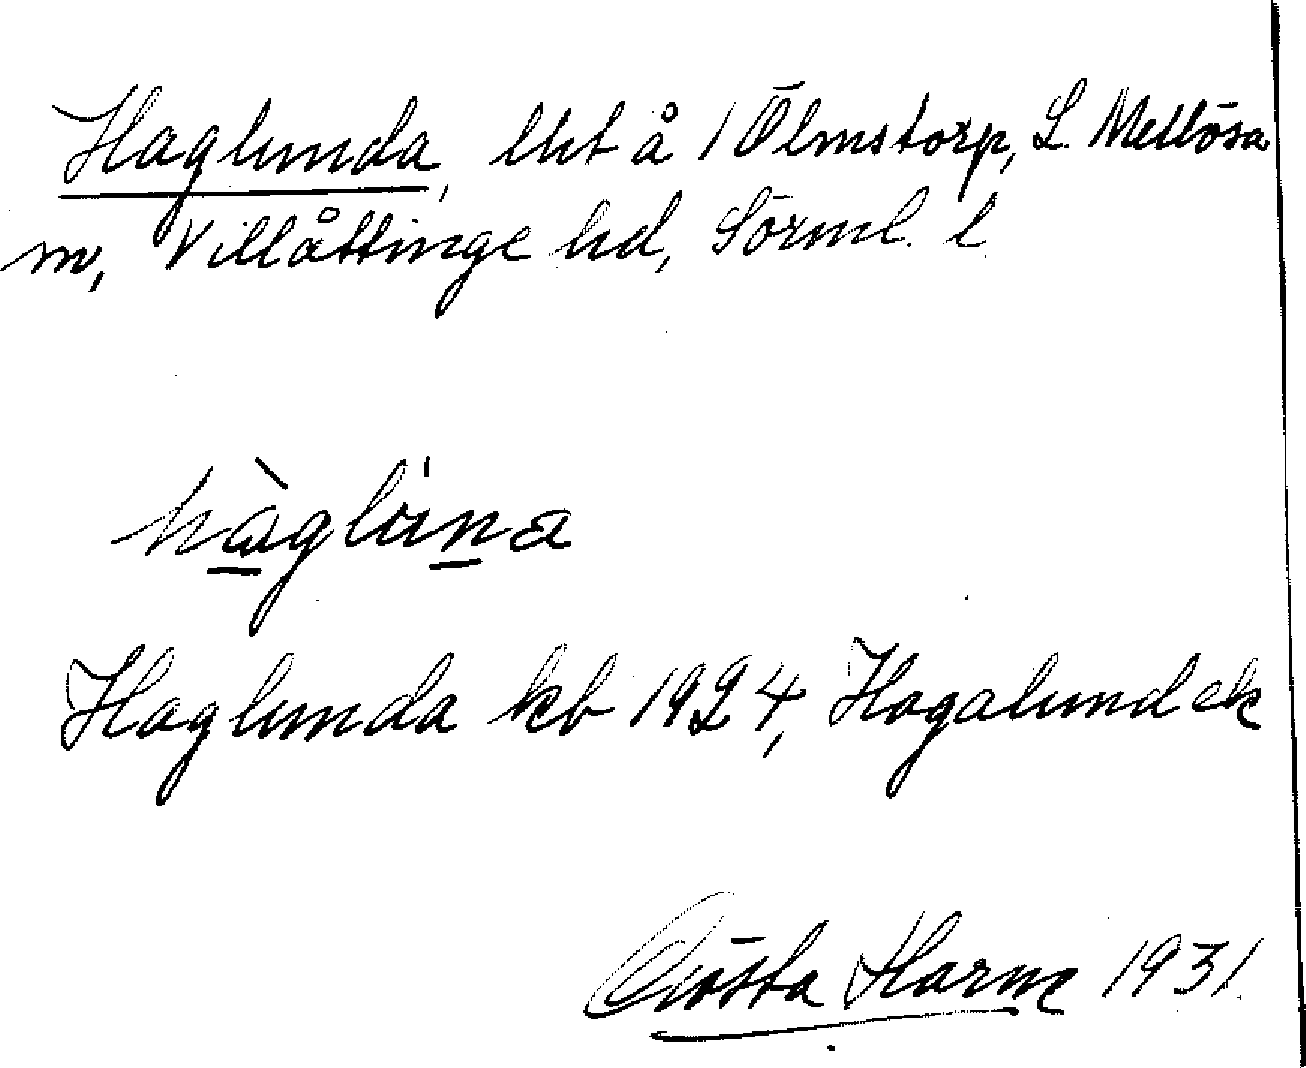 Haglunda, lht å 1 Ölmstorp, L Mellösa
sn, Villåttinge hd, Sörml. l
hàglùna
Haglunda kb 1924, Hagalund ek
Gösta Harne 1931.